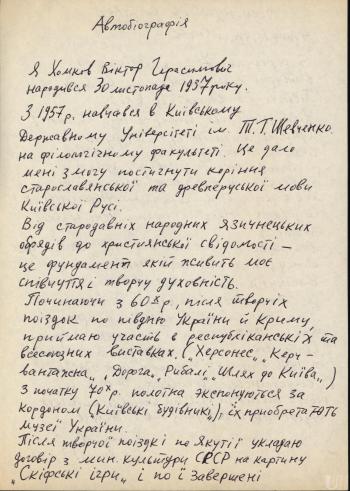 Автобіографія
Я Хомков Віктор Герасимович
народився 30 листопада 1937 року.
З 1957 р. навчався в Київському
Державному Універсітеті ім. Т.Г. Шевченко
на філологічному факультеті. Це дало
мені змогу постигнути коріння
старославянської та древнеруської мови
Київської Русі.
Від стародавніх народних язичнецьких
обрядів до християнської свідомості –
це фундамент якій живить моє
співчуття і творчу духовність.
Починаючи з 60х р., після творчіх
поїздок по півдню України й Криму,
приймаю участь в республіканській та
всесоюзних виставках. („Херсонес„ „Керч-
вантажна„, „Дорога„ „Рибалі„ „Шлях до Київа„)
З початку 70х р. полотна экспонуються за
кордоном (Київські будівникі), їх приобретають
музеї України.
Після творчої поїздкі по Якутії укладаю
договір з мин. культури СССР на картину
„Скіфські ігри„ і по її завершені